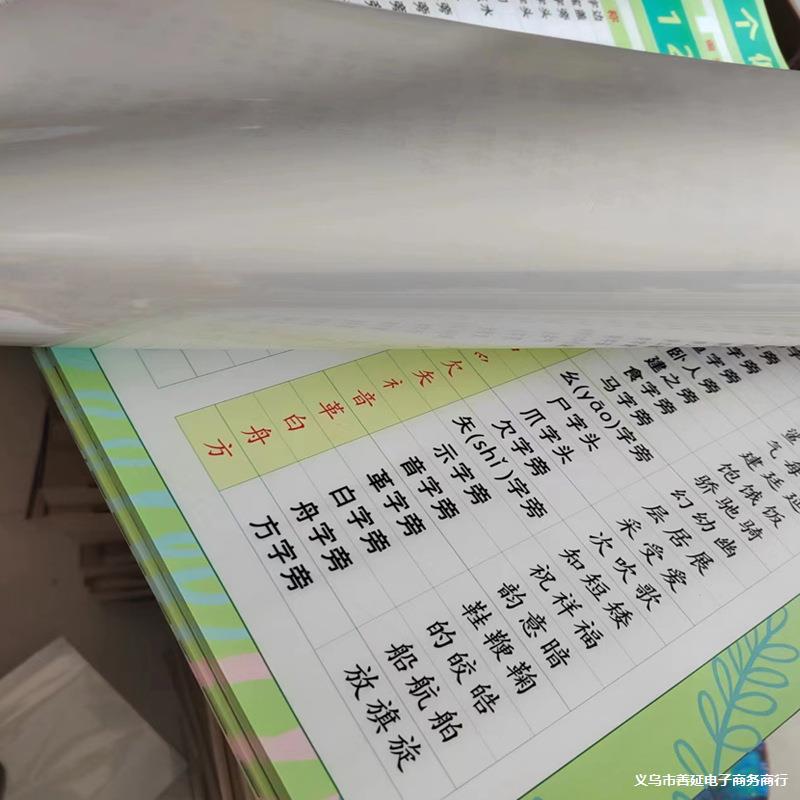 个
1 2
卧人旁
建之旁 建廷延
食字旁 饱饿饭
马字旁 骄驰骑
幺(yāo)字旁 幻幼幽
尸字头 层居展
爪字头 采受爱
欠 欠字旁 次吹歌
矢 矢(shǐ)字旁 知短矮
礻 示字旁 祝祥福
音 音字旁 韵意暗
革 革字旁 鞋鞭鞠
白 白字旁 的皎皓
舟 舟字旁 船航舶
方 方字旁 放旗旋
义乌市善延电子商务商行